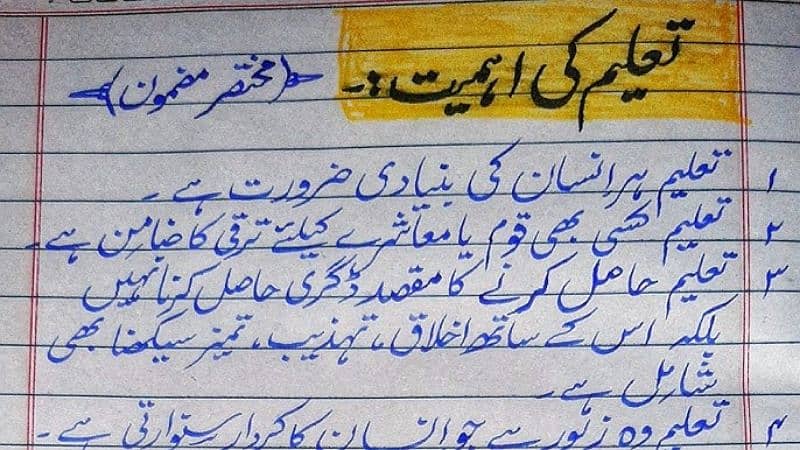 تعلیم کی اہمیت :۔
(مختصر مضمون)
۱ تعلیم ہر انسان کی بنیادی ضرورت ہے ۔
۲ تعلیم کسی بھی قوم یا معاشرے کیلئے ترقی کا ضامن ہے۔
۳ تعلیم حاصل کرنے کا مقصد ڈگری حاصل کرنا نہیں
بلکہ اس کے ساتھ اخلاق ، تہذیب ، تمیز سیکھنا بھی
شامل ہے ۔
۴ تعلیم وہ زیور ہے جو انسان کا کردار سنوارتی ہے ۔